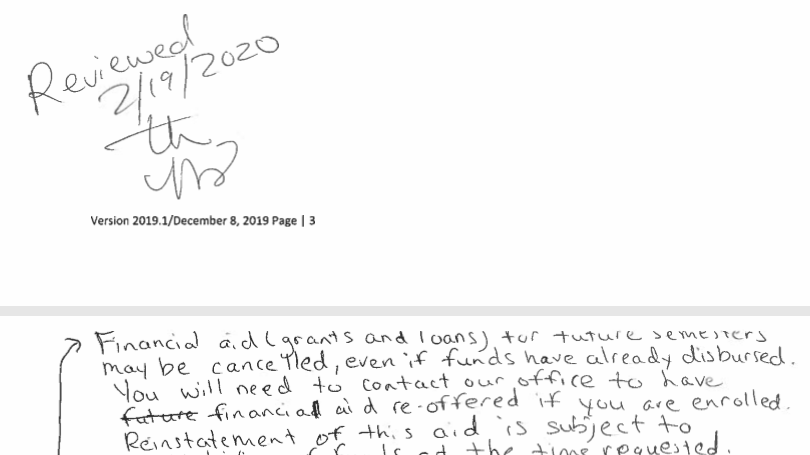 Reviewed
2/19/2020
th
Version 2019.1/December 8, 2019 Page | 3
Financial aid (grants and loans) for future semesters
may be cancelled, even if funds have already disbursed.
You will need to contact our office to have
future financial aid re-offered if you are enrolled.
Reinstatement of this aid is subject to
at the time requested.